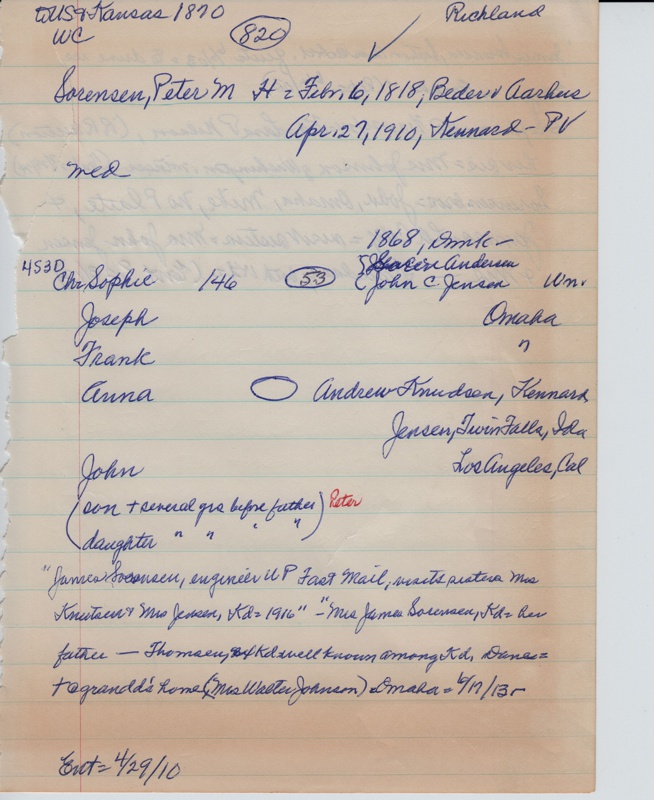 US & Kansas 1870 Richland
WC 820 ✓
Sorensen, Peter M H = Feb. 6, 1818, Beder v Aarhus
Apr. 27, 1910, Kennard - PV
med
1868, Dmk -
453D Andersen
Chr. Sophie 146 53 John C. Jensen Wn.
Joseph Omaha
Frank "
Anna Andrew Knudsen, Kennard
Jensen, Twin Falls, Ida
John Los Angeles, Cal
(son + several yrs before father) Peter
daughter " " " "
"James Sorensen, engineer UP Fast Mail, visits sisters Mrs
Knutsen & Mrs Jensen, Kd = 1916" - "Mrs James Sorensen, Kd = her
father — Thomsen, Kd well known among Kd. Danes =
+ @ grandd's home (Mrs Walter Johnson) Omaha = 6/17/13
Ent = 4/29/10